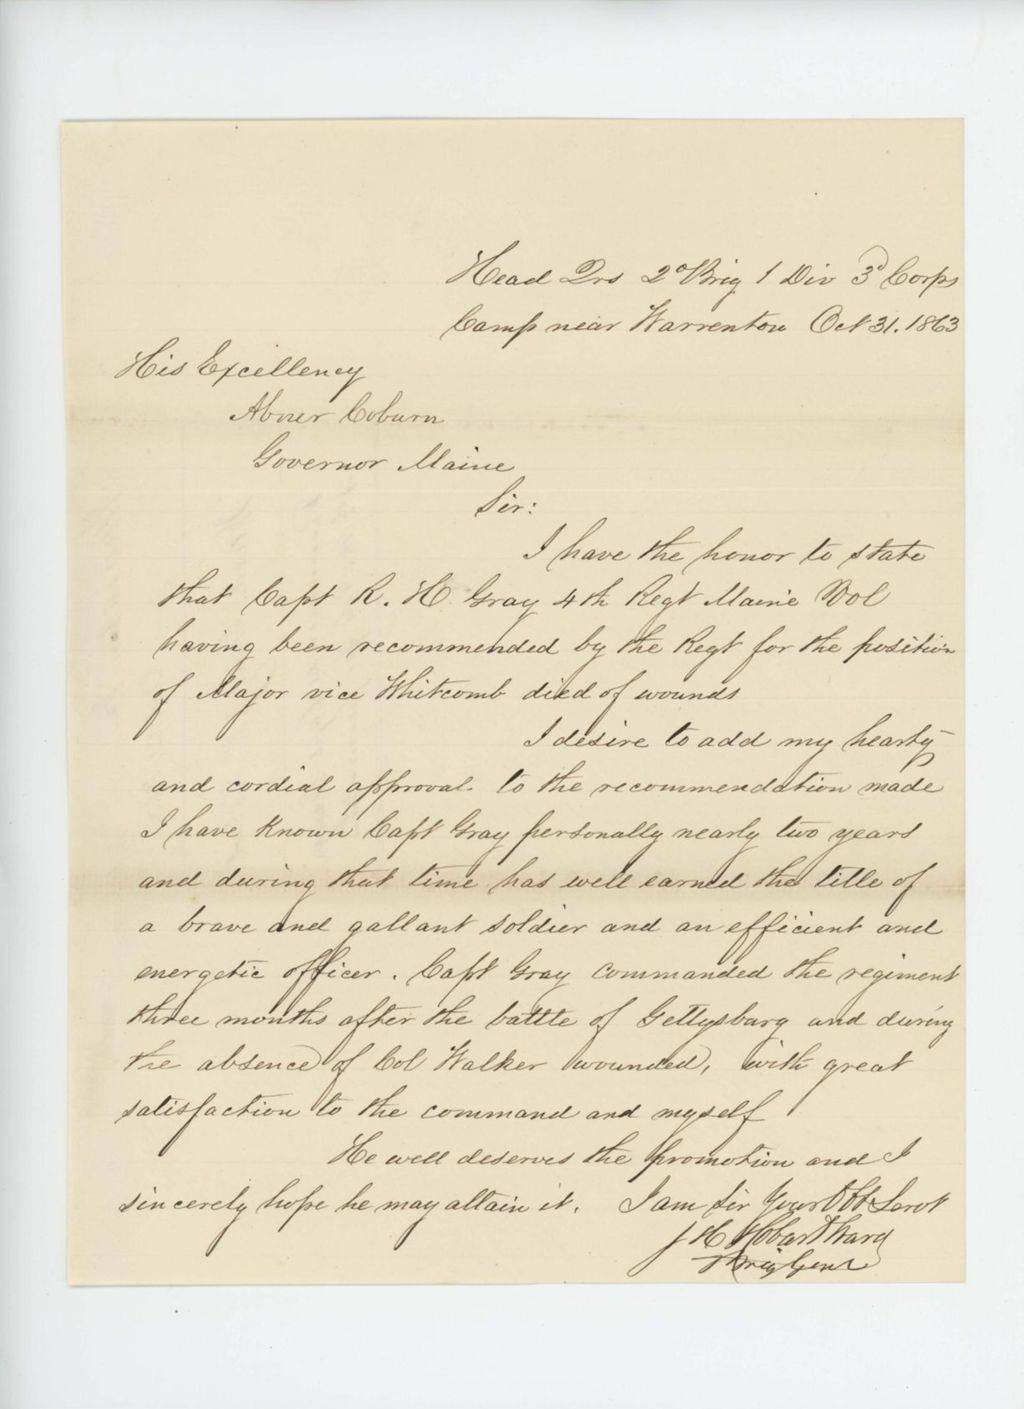 Head Qrs 2d Brig 1 Div 3d Corps
Camp near Warrenton Oct 31. 1863
His Excellency
Abner Coburn
Governor Maine
Sir:
I have the honor to state
that Capt R. H. Gray 4th Regt Maine Vol
having been recommended by the Regt for the position
of Major vice Whitcomb died of wounds
I desire to add my hearty
and cordial approval to the recommendation made
I have known Capt Gray personally nearly two years
and during that time has well earned the title of
a brave and gallant soldier and an efficient and
energetic officer. Capt Gray commanded the regiment
three months after the battle of Gettysburg and during
the absence of Col Walker (wounded), with great
satisfaction to the command and myself
He well deserves the promotion and I
sincerely hope he may attain it. I am Sir Your Obt Servt
J H Hobart Ward
Brig Genl